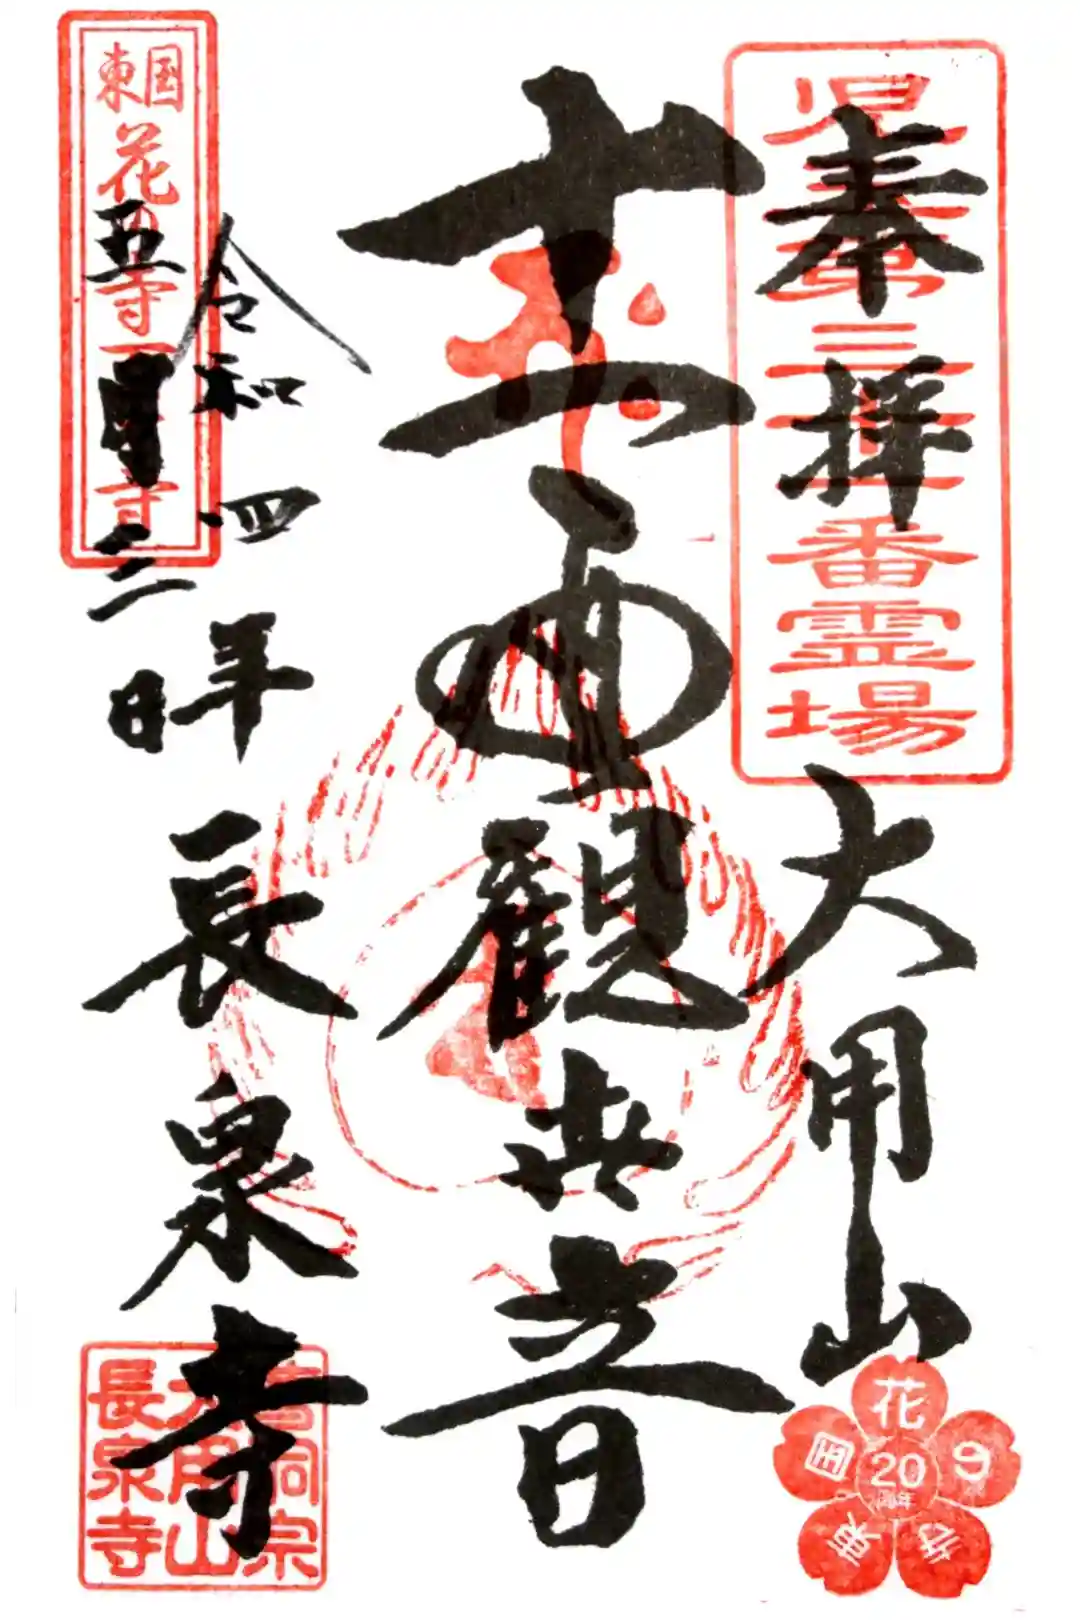 奉拝
大用山
十一面觀世音
令和四年
五月三日
長泉寺
番霊場
東国花の寺百ヶ寺
曹洞宗
大用山
長泉寺
花の寺
東国
20
周年